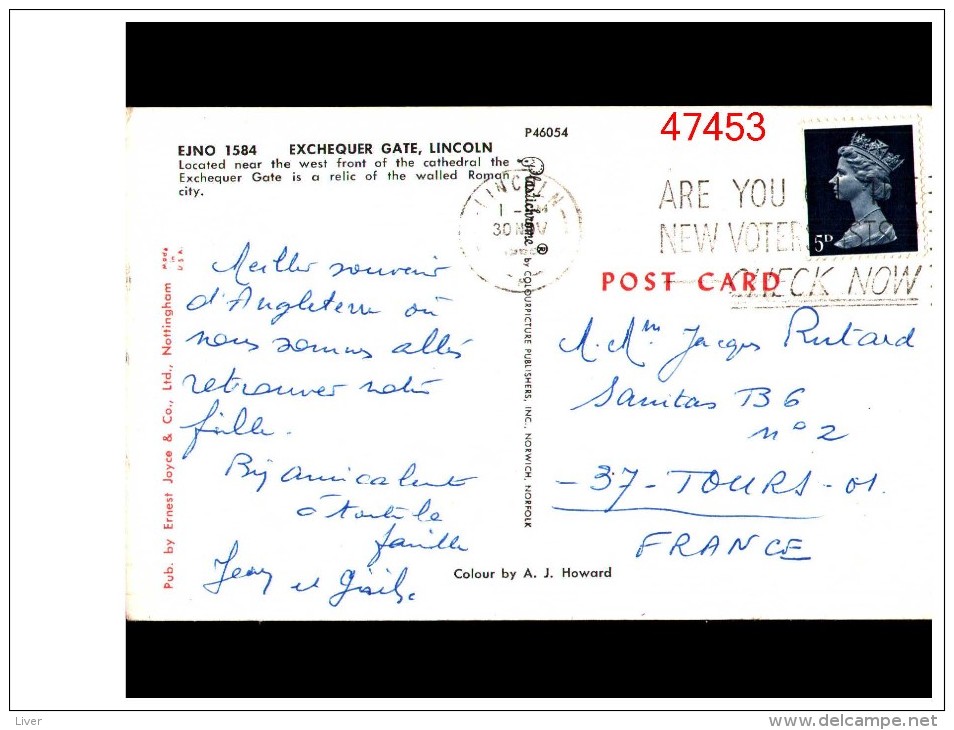 47453
P46054
EJNO 1584 EXCHEQUER GATE, LINCOLN
Located near the west front of the cathedral the
Exchequer Gate is a relic of the walled Roman
city.
LINCOLN
30 NOV
ARE YOU
NEW VOTERS
CHECK NOW
5D
POST CARD
Plastichrome ® by COLOURPICTURE PUBLISHERS, INC., NORWICH, NORFOLK
Made in U.S.A.
Pub. by Ernest Joyce & Co., Ltd., Nottingham
Meilleur souvenir
d'Angleterre où
nous sommes allés
retrouver notre
fille.
Bien amicalement
à toute la
famille
Jean et Gisèle
M. Mme Jacques Rutard
Sanitas B 6
n° 2
- 37 - TOURS - 01.
FRANCE
Colour by A. J. Howard
Liver
www.delcampe.net